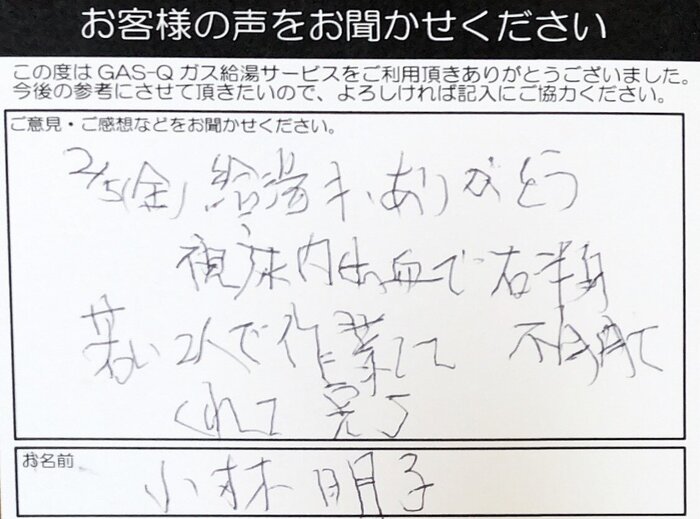 お客様の声をお聞かせください
この度はGAS-Qガス給湯サービスをご利用頂きありがとうございました。
今後の参考にさせて頂きたいので、よろしければ記入にご協力ください。
ご意見・ご感想などをお聞かせください。
2/5(金)給湯キ、ありがとう
視床内出血で右半身
若い2人で作業して 不自由で
くれて完了
お名前
小林明子